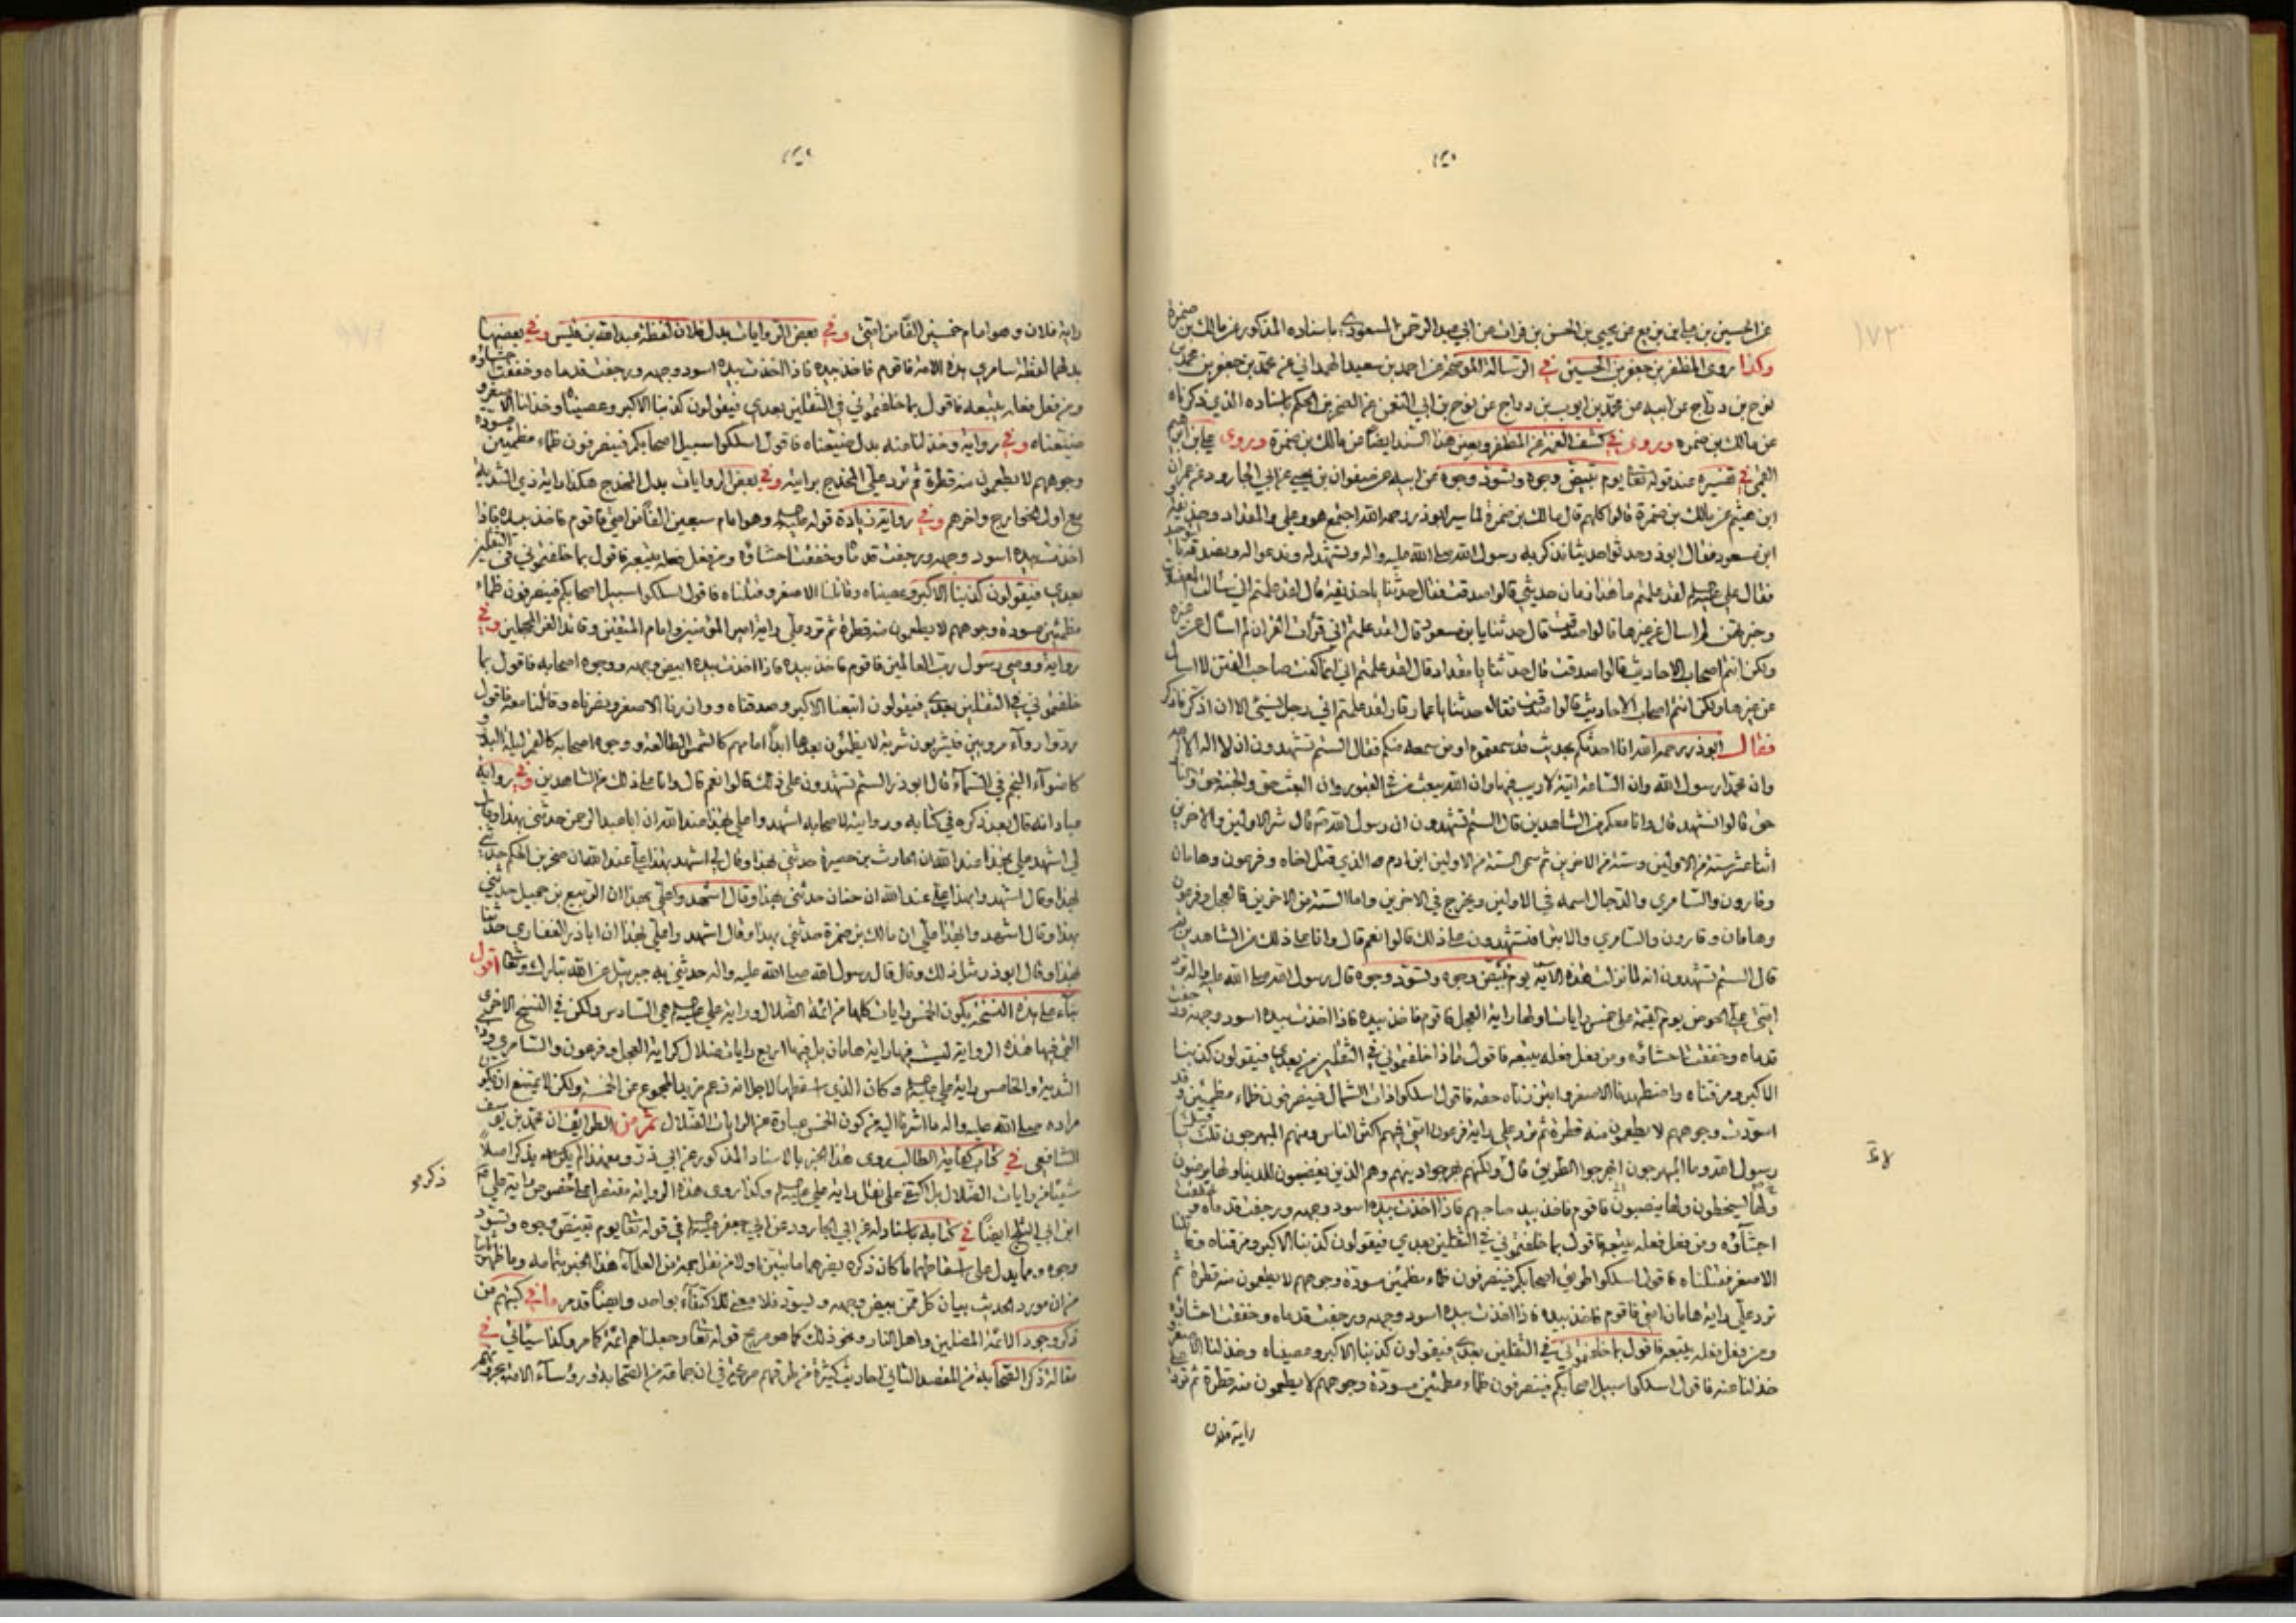 عن الحسين بن علي بن بزيع عن يحيى بن الحسن بن فرات عن ابي عبد الرحمن المسعودي باسناده المذكور عن مالك بن ضمرة
وكذا روى المظفر بن جعفر بن الحسين في الرسالة الموضحة عن احمد بن سعيد الهمداني عن محمد بن جعفر بن محمد بن
نوح بن دراج عن ابيه عن محمد بن ايوب بن دراج عن نوح بن ابي النعمن عن الصخر بن الحكم باسناده الذي ذكرناه
عن مالك بن ضمره وروى في كشف الغمة عن المظفر وبعين هذا السند ايضا عن مالك بن ضمرة وروى علي بن ابرهيم
القمي في تفسيره عند قوله تعا يوم تبيض وجوه وتسود وجوه عن ابيه عن صفوان بن يحيى عن ابي الجارود عن عمران
ابن هيثم عن مالك بن ضمرة قالوا كلهم قال مالك بن ضمرة لما سير ابوذر رحمه الله اجتمع هو وعلي والمقداد وحذيفة
ابن مسعود فقال ابوذر حدثوا حديثا نذكر به رسول الله صلى الله عليه واله ونشهد له وندعوا له ونصدقه
فقال علي لقد علمتم ما هذا زمان حديثي قالوا صدقت فقال حدثنا يا حذيفة قال لقد علمتم اني سالت المعضلات
وخبرتهن لم اسال عن غيرها قالوا صدقت قال حدثنا يا بن مسعود قال لقد علمتم اني قرات القران لم اسال عن غيره
ولكن انتم اصحاب الاحاديث قالوا صدقت قال حدثنا يا مقداد قال لقد علمتم اني انما كنت صاحب الفتن لا اسال
عن غيرها ولكن انتم اصحاب الاحاديث قالوا صدقت فقال حدثنا يا عمار قال لقد علمتم اني رجل نسي الا ان اذكر فاذكر
فقال ابوذر رحمه الله انا احدثكم بحديث قد سمعتموه او من سمعه منكم فقال الستم تشهدون ان لا اله الا الله
وان محمدا رسول الله وان الساعة اتية لا ريب فيها وان الله يبعث من في القبور وان البعث حق والجنة حق والنار
حق قالوا نشهد قال وانا معكم من الشاهدين قال الستم تشهدون ان رسول الله قال شر الاولين والاخرين
اثنا عشر ستة من الاولين وستة من الاخرين ثم سمى الستة من الاولين ابن ادم الذي قتل اخاه وفرعون وهامان
وقارون والسامري والدجال اسمه في الاولين ويخرج في الاخرين واما الستة من الاخرين فالعجل وفرعون
وهامان وقارون والسامري والابتر افتشهدون على ذلك قالوا نعم قال وانا على ذلك من الشاهدين ثم
قال الستم تشهدون انه لما نزلت هذه الآية يوم تبيض وجوه وتسود وجوه قال رسول الله صلى الله عليه واله ترد
امتي علي الحوض يوم القيمة على خمس رايات اولها راية العجل فاقوم فاخذ بيده فاذا اخذت بيده اسود وجهه ورجفت
قدماه وخفقت احشاؤه ومن فعل فعله يتبعه فاقول ماذا خلفتموني في الثقلين من بعدي فيقولون كذبنا
الاكبر ومزقناه واضطهدنا الاصغر وابتززناه حقه فاقول اسلكوا ذات الشمال فينصرفون ظماء مظمئين قد
اسودت وجوههم لا يطعمون منه قطرة ثم ترد علي راية فرعون امتي فيهم اكثر الناس ومنهم المبهرجون قلت يا
رسول الله وما المبهرجون ابهرجوا الطريق قال لا ولكنهم بهرجوا دينهم وهم الذين يغضبون للدنيا ولها يرضون
ولها يسخطون ولها ينصبون فاقوم فاخذ بيد صاحبهم فاذا اخذت بيده اسود وجهه ورجفت قدماه وخفقت
احشاؤه ومن فعل فعله يتبعه فاقول بما خلفتموني في الثقلين بعدي فيقولون كذبنا الاكبر ومزقناه وقاتلنا
الاصغر فقتلناه فاقول اسلكوا طريق اصحابكم فينصرفون ظماء مظمئين مسودة وجوههم لا يطعمون منه قطرة ثم
ترد علي راية هامان امتي فاقوم فاخذ بيده فاذا اخذت بيده اسود وجهه ورجفت قدماه وخفقت احشاؤه
ومن فعل فعله يتبعه فاقول بما خلفتموني في الثقلين بعدي فيقولون كذبنا الاكبر وعصيناه وخذلنا الاصغر
خذلنا عنه فاقول اسلكوا سبيل اصحابكم فينصرفون ظماء مظمئين مسودة وجوههم لا يطعمون منه قطرة ثم ترد علي
راية فلان
راية فلان وهو امام خمسين الفا من امتي وفي بعض الروايات بدل فلان لفظة عبد الله بن قيس وفي بعضها
بدلها لفظة سامري هذه الامة فاقوم فاخذ بيده فاذا اخذت بيده اسود وجهه ورجفت قدماه وخفقت احشاؤه
ومن فعل فعله يتبعه فاقول بما خلفتموني في الثقلين بعدي فيقولون كذبنا الاكبر وعصيناه وخذلنا الاصغر
ضيعناه وفي رواية وخذلنا عنه بدل ضيعناه فاقول اسلكوا سبيل اصحابكم فينصرفون ظماء مظمئين مسودة
وجوههم لا يطعمون منه قطرة ثم ترد علي المخدج برايته وفي بعض الروايات بدل المخدج هكذا راية ذي الثدية
مع اول الخوارج واخرهم وفي رواية زيادة قوله وهو امام سبعين الفا من امتي فاقوم فاخذ بيده فاذا
اخذت بيده اسود وجهه ورجفت قدماه وخفقت احشاؤه ومن فعل فعله يتبعه فاقول بما خلفتموني في الثقلين
بعدي فيقولون كذبنا الاكبر وعصيناه وقاتلنا الاصغر وقتلناه فاقول اسلكوا سبيل اصحابكم فينصرفون ظماء
مظمئين مسودة وجوههم لا يطعمون منه قطرة ثم ترد علي راية امير المؤمنين وامام المتقين وقائد الغر المحجلين وفي
رواية ووصي رسول رب العالمين فاقوم فاخذ بيده فاذا اخذت بيده ابيض وجهه ووجوه اصحابه فاقول بما
خلفتموني في الثقلين بعدي فيقولون اتبعنا الاكبر وصدقناه ووازرنا الاصغر ونصرناه وقاتلنا معه فاقول
ردوا رواء مرويين فيشربون شربة لا يظمئون بعدها ابدا امامهم كالشمس الطالعة ووجوه اصحابه كالقمر ليلة البدر و
كاضوآء النجم في السمآء قال ابوذر الستم تشهدون على ذلك قالوا نعم قال وانا على ذلك من الشاهدين وفي رواية
عباد انه قال بعد ذكره في كتابه وروايته لاصحابه اشهدوا علي بهذا عند الله ان ابا عبد الرحمن حدثني بهذا وقال
لي اشهد علي بهذا عند الله ان الحارث بن حصيرة حدثني بهذا وقال لي اشهد بهذا علي عند الله ان صخر بن الحكم حدثني
بهذا وقال اشهدوا بهذا علي عند الله ان حنان حدثني بهذا وقال اشهدوا علي بهذا ان الربيع بن جميل حدثني
بهذا وقال اشهدوا بهذا علي ان مالك بن ضمرة حدثني بهذا وقال اشهدوا علي بهذا ان اباذر الغفاري حدثنا
بهذا وقال ابوذر مثل ذلك وقال قال رسول الله صلى الله عليه واله حدثني به جبرئيل عن الله تبارك وتعا اقول
بناء على هذه النسخة يكون الخمس رايات كلها من ائمة الضلال وراية علي هي السادس ولكن في النسخ الاخرى
التي فيها هذه الرواية ليست فيها راية هامان بل فيها اربع رايات ضلال كراية العجل وفرعون والسامري وذي
الثدية والخامس راية علي وكان الذي اسقطها لاجل انه زعم مزيد المجموع عن الخمسة ولكن لا يمتنع ان يكون
مراده صلى الله عليه واله ما اشرنا اليه من كون الخمس عبارة عن الرايات الضلال ثم من الطرائف ان محمد بن يوسف
الشافعي في كتاب كفاية الطالب روى هذا الخبر بالاسناد المذكور عن ابي ذر ومعهذا لم يكن يذكر اصلا
شيئا من رايات الضلال بل اكتفى على نقل راية علي وكذا روى هذه الرواية مقتصرا على خصوص راية علي
ابن ابي الثلج ايضا في كتابه باسناد له عن ابي الجارود عن ابي جعفر في قوله تعا يوم تبيض وجوه وتسود
ذكره
وجوه ومما يدل على اسقاطهما ما كان ذكره يضرهما ما بينا اولا من نقل جمع من العلمآء هذا الخبر بتمامه وما ظهر ثانيا
من ان مورد الحديث بيان كل ممن يبيض وجهه ويسود فلا معنى للاكتفاء بواحد وايضا قد مر ما في كتبهم من
ذكر وجود الائمة المضلين واهل النار ونحو ذلك كما هو صريح قوله تعا وجعلناهم ائمة كما مر وكذا سياتي في
مقالة ذكر الصحابة من المقصد الثاني احاديث كثيرة من طرقهم في ان جماعة من الصحابة ورؤسآء الامة